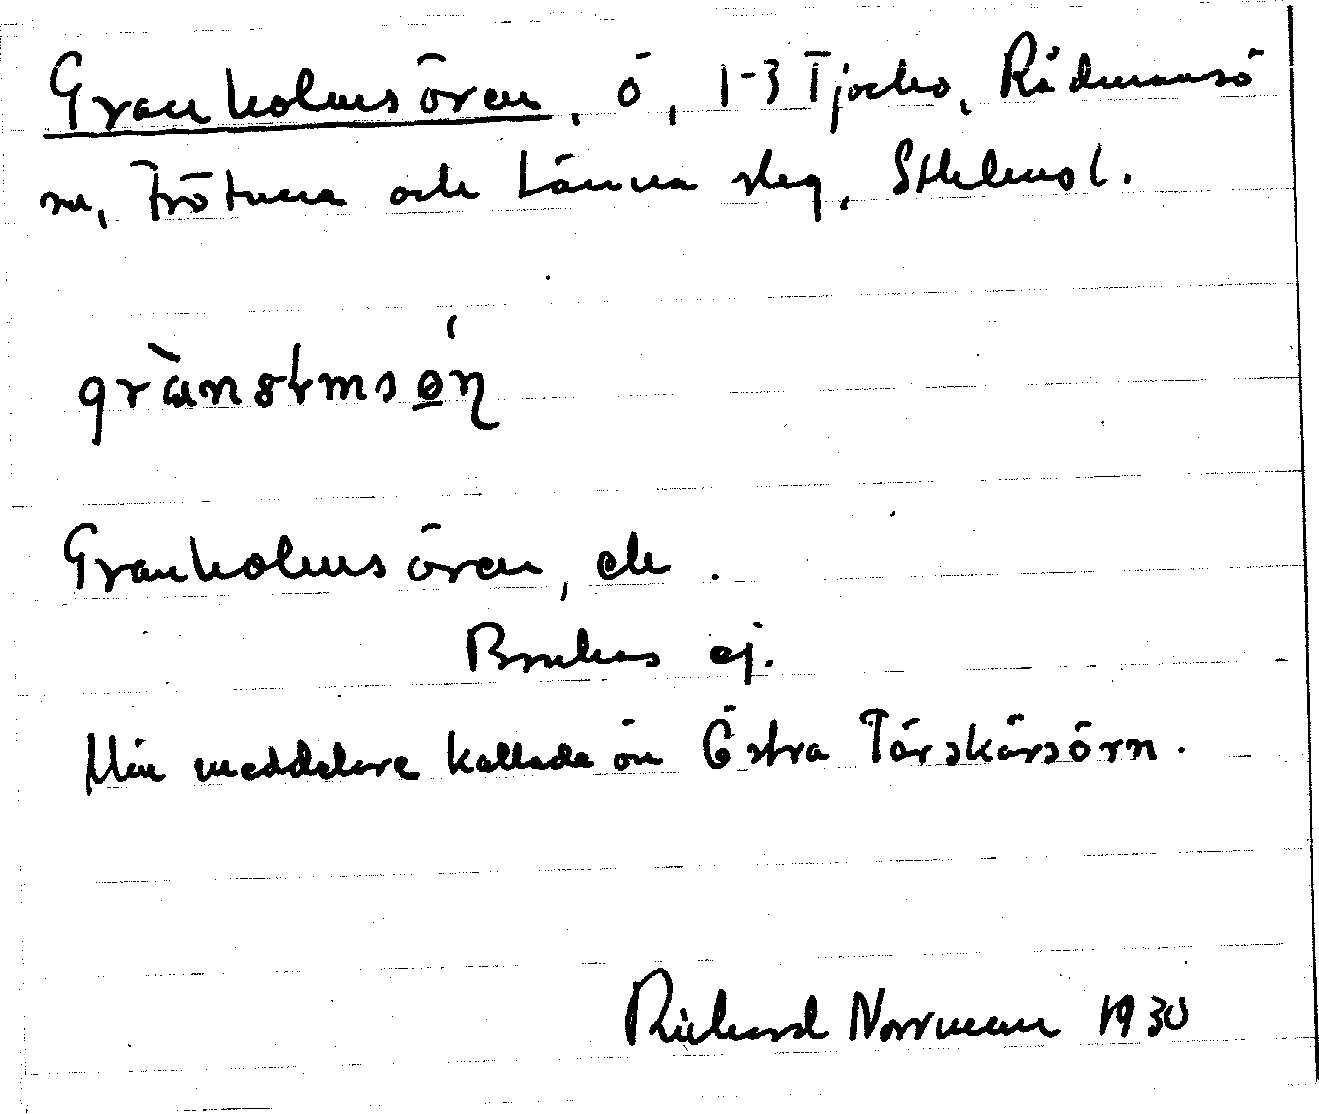 Granholmsören, ö, 1-3 Tjocko, Rådmansö
sn, Frötuna och Länna skg, Sthlms l.
Granholmsören, ek.
Brukas ej.
Min meddelare kallade ön Östra Törskärsörn.
Richard Norrman 1930